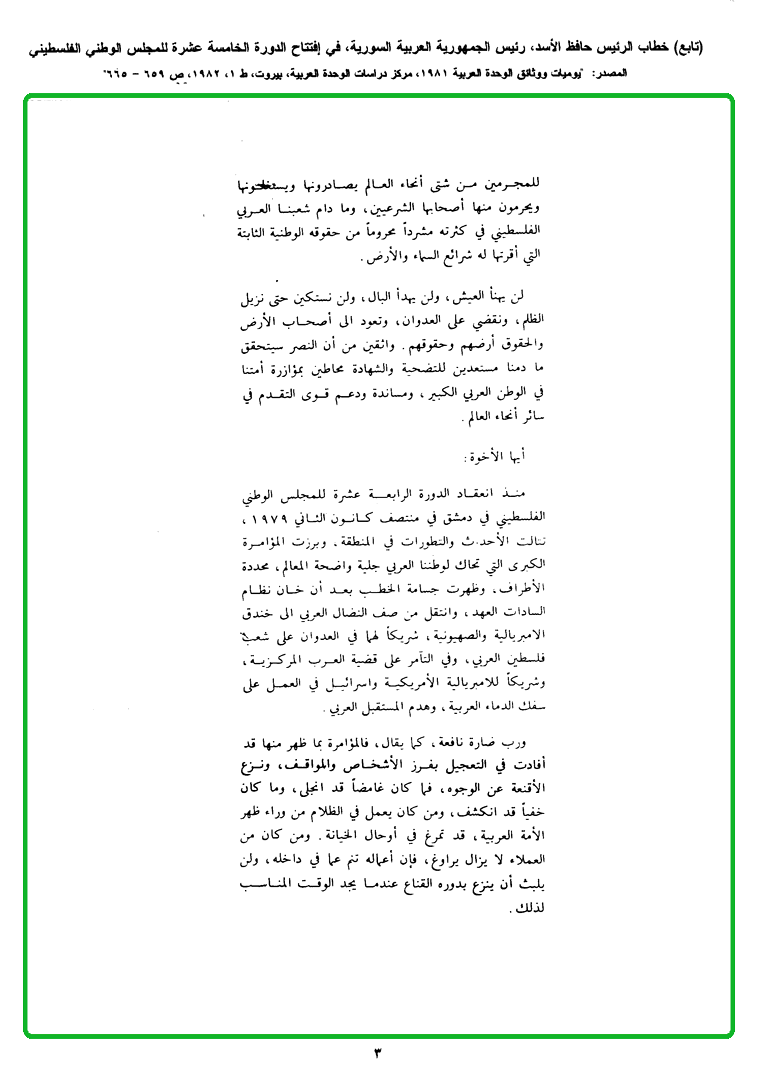 (تابع) خطاب الرئيس حافظ الأسد، رئيس الجمهورية العربية السورية، في إفتتاح الدورة الخامسة عشرة للمجلس الوطني الفلسطيني
المصدر: "يوميات ووثائق الوحدة العربية ١٩٨١، مركز دراسات الوحدة العربية، بيروت، ط ١، ١٩٨٢، ص ٦٥٩ - ٦٦٥"
للمجرمين من شتى أنحاء العالم يصادرونها ويستغلونها
ويحرمون منها أصحابها الشرعيين، وما دام شعبنا العربي
الفلسطيني في كثرته مشرداً محروماً من حقوقه الوطنية الثابتة
التي أقرتها له شرائع السماء والأرض.
لن يهنأ العيش، ولن يهدأ البال، ولن نستكين حتى نزيل
الظلم، ونقضي على العدوان، وتعود الى أصحاب الأرض
والحقوق أرضهم وحقوقهم. واثقين من أن النصر سيتحقق
ما دمنا مستعدين للتضحية والشهادة محاطين بمؤازرة أمتنا
في الوطن العربي الكبير، ومساندة ودعم قوى التقدم في
سائر أنحاء العالم.
أيها الأخوة:
منذ انعقاد الدورة الرابعة عشرة للمجلس الوطني
الفلسطيني في دمشق في منتصف كانون الثاني ١٩٧٩،
تتالت الأحداث والتطورات في المنطقة، وبرزت المؤامرة
الكبرى التي تحاك لوطننا العربي جلية واضحة المعالم، محددة
الأطراف، وظهرت جسامة الخطب بعد أن خان نظام
السادات العهد، وانتقل من صف النضال العربي الى خندق
الامبريالية والصهيونية، شريكاً لهما في العدوان على شعب
فلسطين العربي، وفي التآمر على قضية العرب المركزية،
وشريكاً للامبريالية الأمريكية واسرائيل في العمل على
سفك الدماء العربية، وهدم المستقبل العربي.
ورب ضارة نافعة، كما يقال، فالمؤامرة بما ظهر منها قد
أفادت في التعجيل بفرز الأشخاص والمواقف، ونزع
الأقنعة عن الوجوه، فما كان غامضاً قد انجلى، وما كان
خفياً قد انكشف، ومن كان يعمل في الظلام من وراء ظهر
الأمة العربية، قد تمرغ في أوحال الخيانة. ومن كان من
العملاء لا يزال يراوغ، فإن أعماله تنم عما في داخله، ولن
يلبث أن ينزع بدوره القناع عندما يجد الوقت المناسب
لذلك.
٣